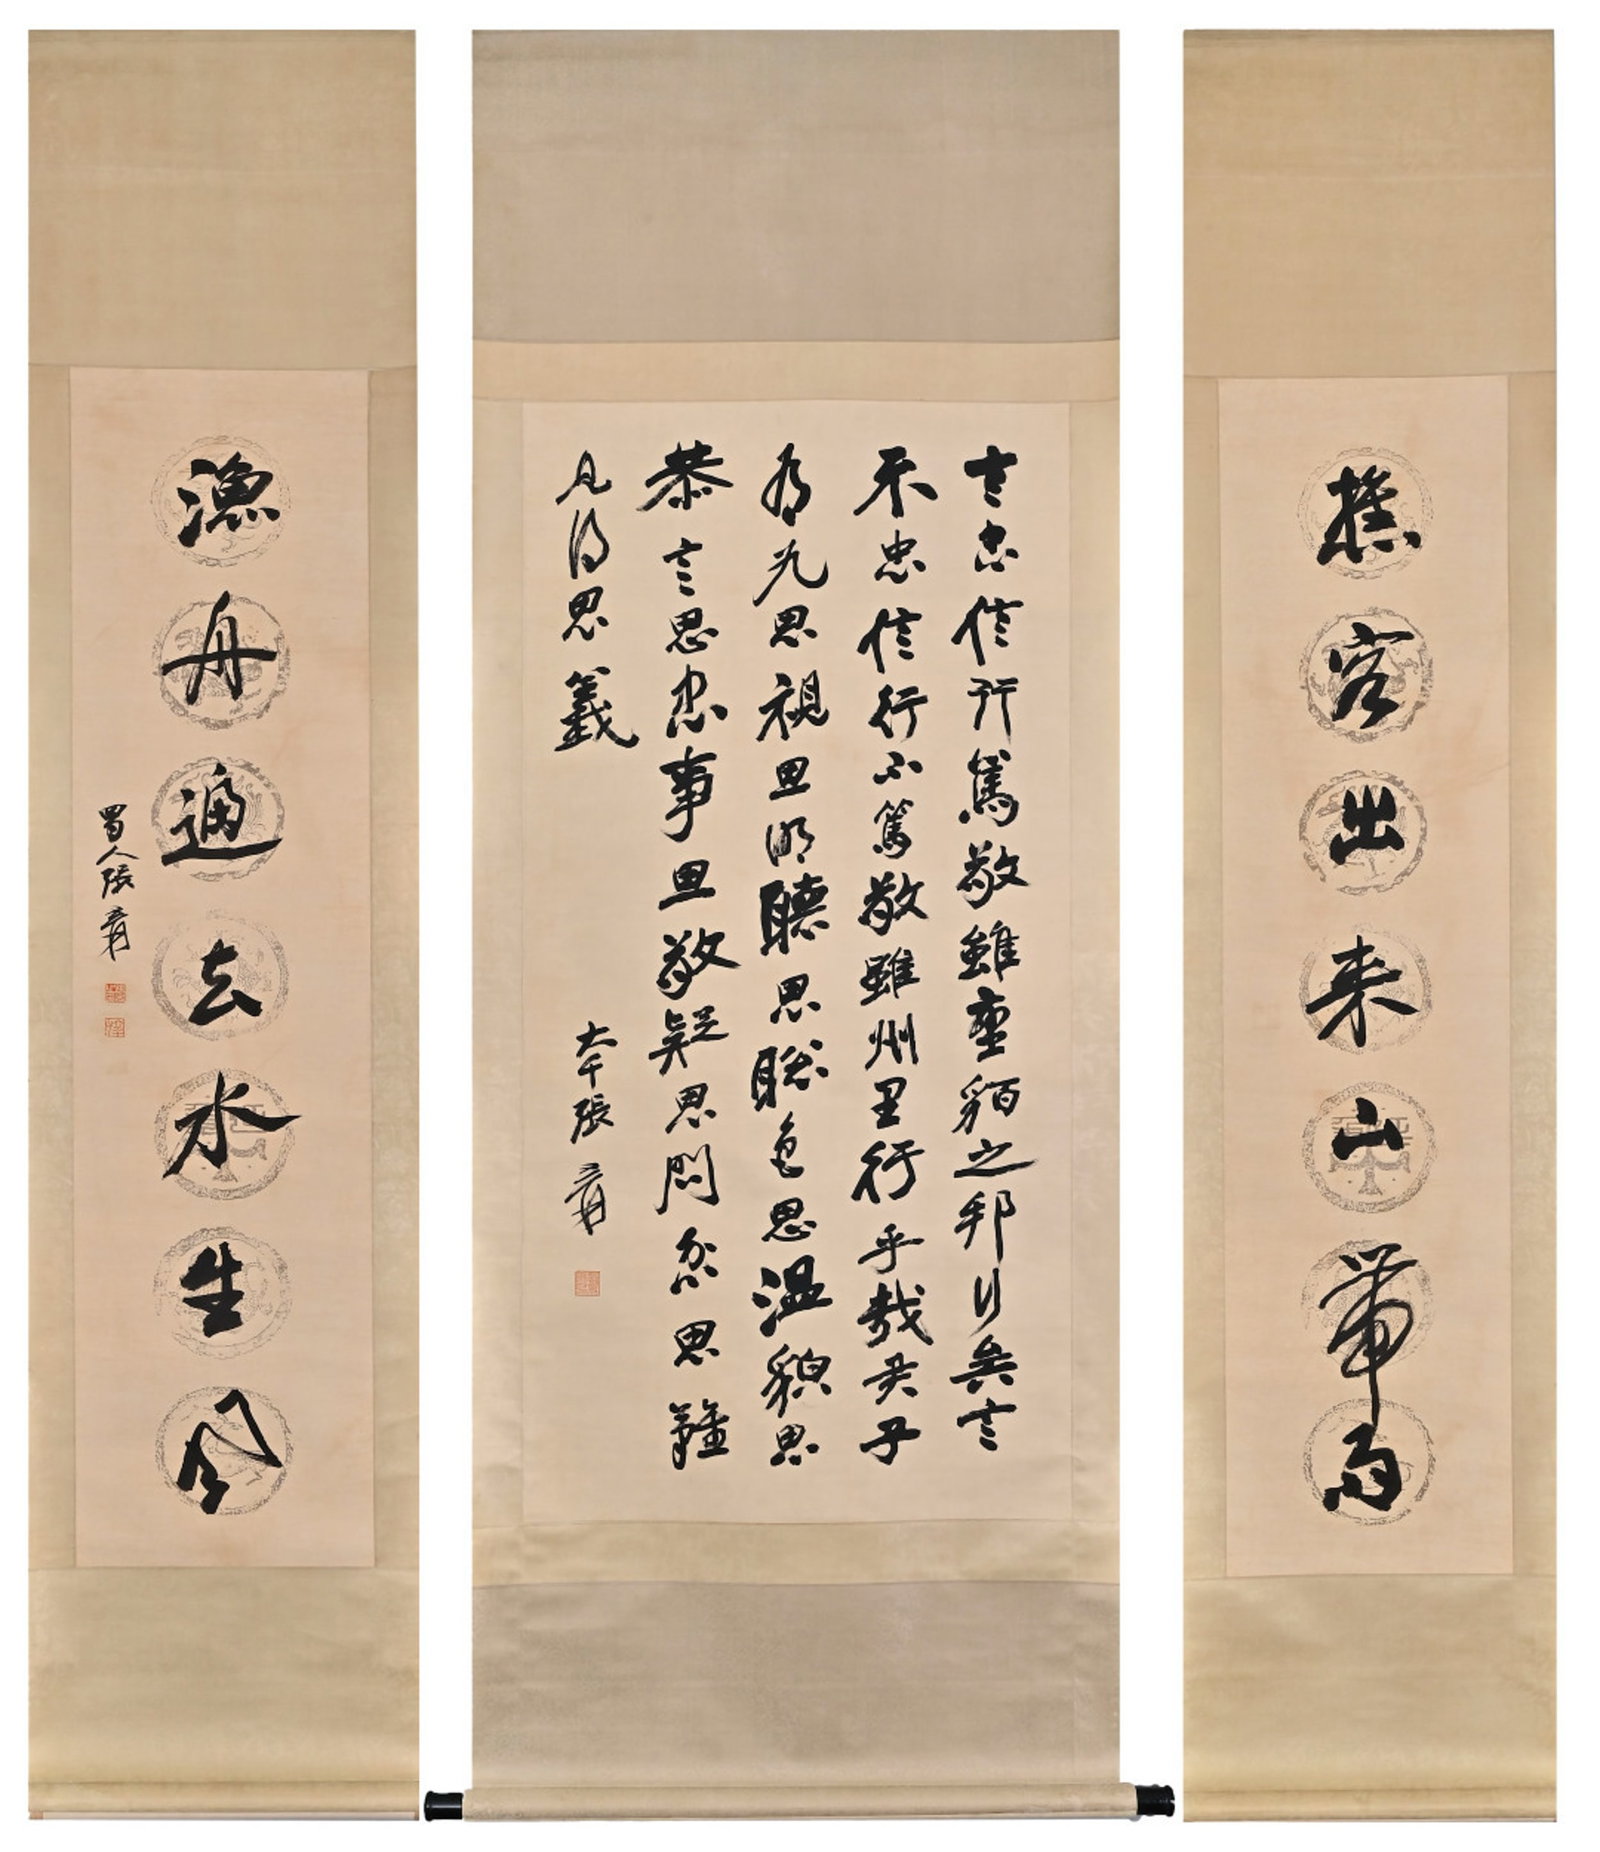 樵客出来山帶雨
言忠信行篤敬雖蠻貊之邦行矣言
不忠信行不篤敬雖州里行乎哉君子
有九思視思明聽思聰色思溫貌思
恭言思忠事思敬疑思問忿思難
見得思義
大千張爰
漁舟過去水生風
蜀人張爰